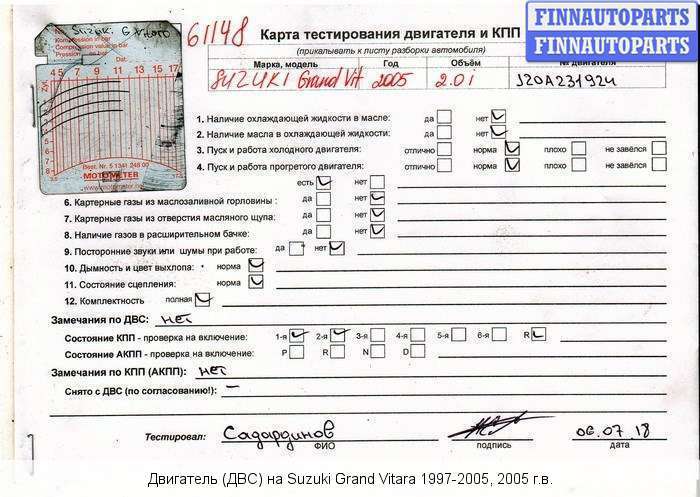 Suzuki G Vitara
Kompression in bar
Compression value in bar
Dat.
4 5 7 8 10 12 15 17
Best. Nr. 5 1341 248 00
MOTOMETER
www.motometer.
3,5 17,5
61148
Карта тестирования двигателя и КПП
(прикалывать к листу разборки автомобиля)
FINNAUTOPARTS
FINNAUTOPARTS
Марка, модель Год Объём № двигателя
SUZUKI Grand Vit 2005 2.0i J20A231924
1. Наличие охлаждающей жидкости в масле: да нет
2. Наличие масла в охлаждающей жидкости: да нет
3. Пуск и работа холодного двигателя: отлично норма плохо не завёлся
4. Пуск и работа прогретого двигателя: отлично норма плохо не завёлся
есть нет
6. Картерные газы из маслозаливной горловины: да нет
7. Картерные газы из отверстия масляного щупа: да нет
8. Наличие газов в расширительном бачке: да нет
9. Посторонние звуки или шумы при работе: да нет
10. Дымность и цвет выхлопа: норма
11. Состояние сцепления: норма
12. Комплектность полная
Замечания по ДВС: нет
Состояние КПП - проверка на включение: 1-я 2-я 3-я 4-я 5-я 6-я R
Состояние АКПП - проверка на включение: P R N D
Замечания по КПП (АКПП): нет
Снято с ДВС (по согласованию!): –
Тестировал: Садардинов 06.07.18
ФИО подпись дата
Двигатель (ДВС) на Suzuki Grand Vitara 1997-2005, 2005 г.в.